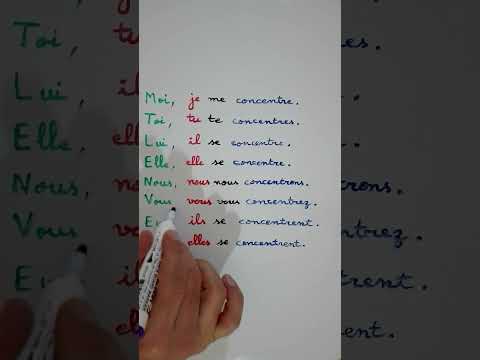 Moi, je me concentre.
Toi, tu te concentres.
Lui, il se concentre.
Elle, elle se concentre.
Nous, nous nous concentrons.
Vous, vous vous concentrez.
ils se concentrent.
elles se concentrent.